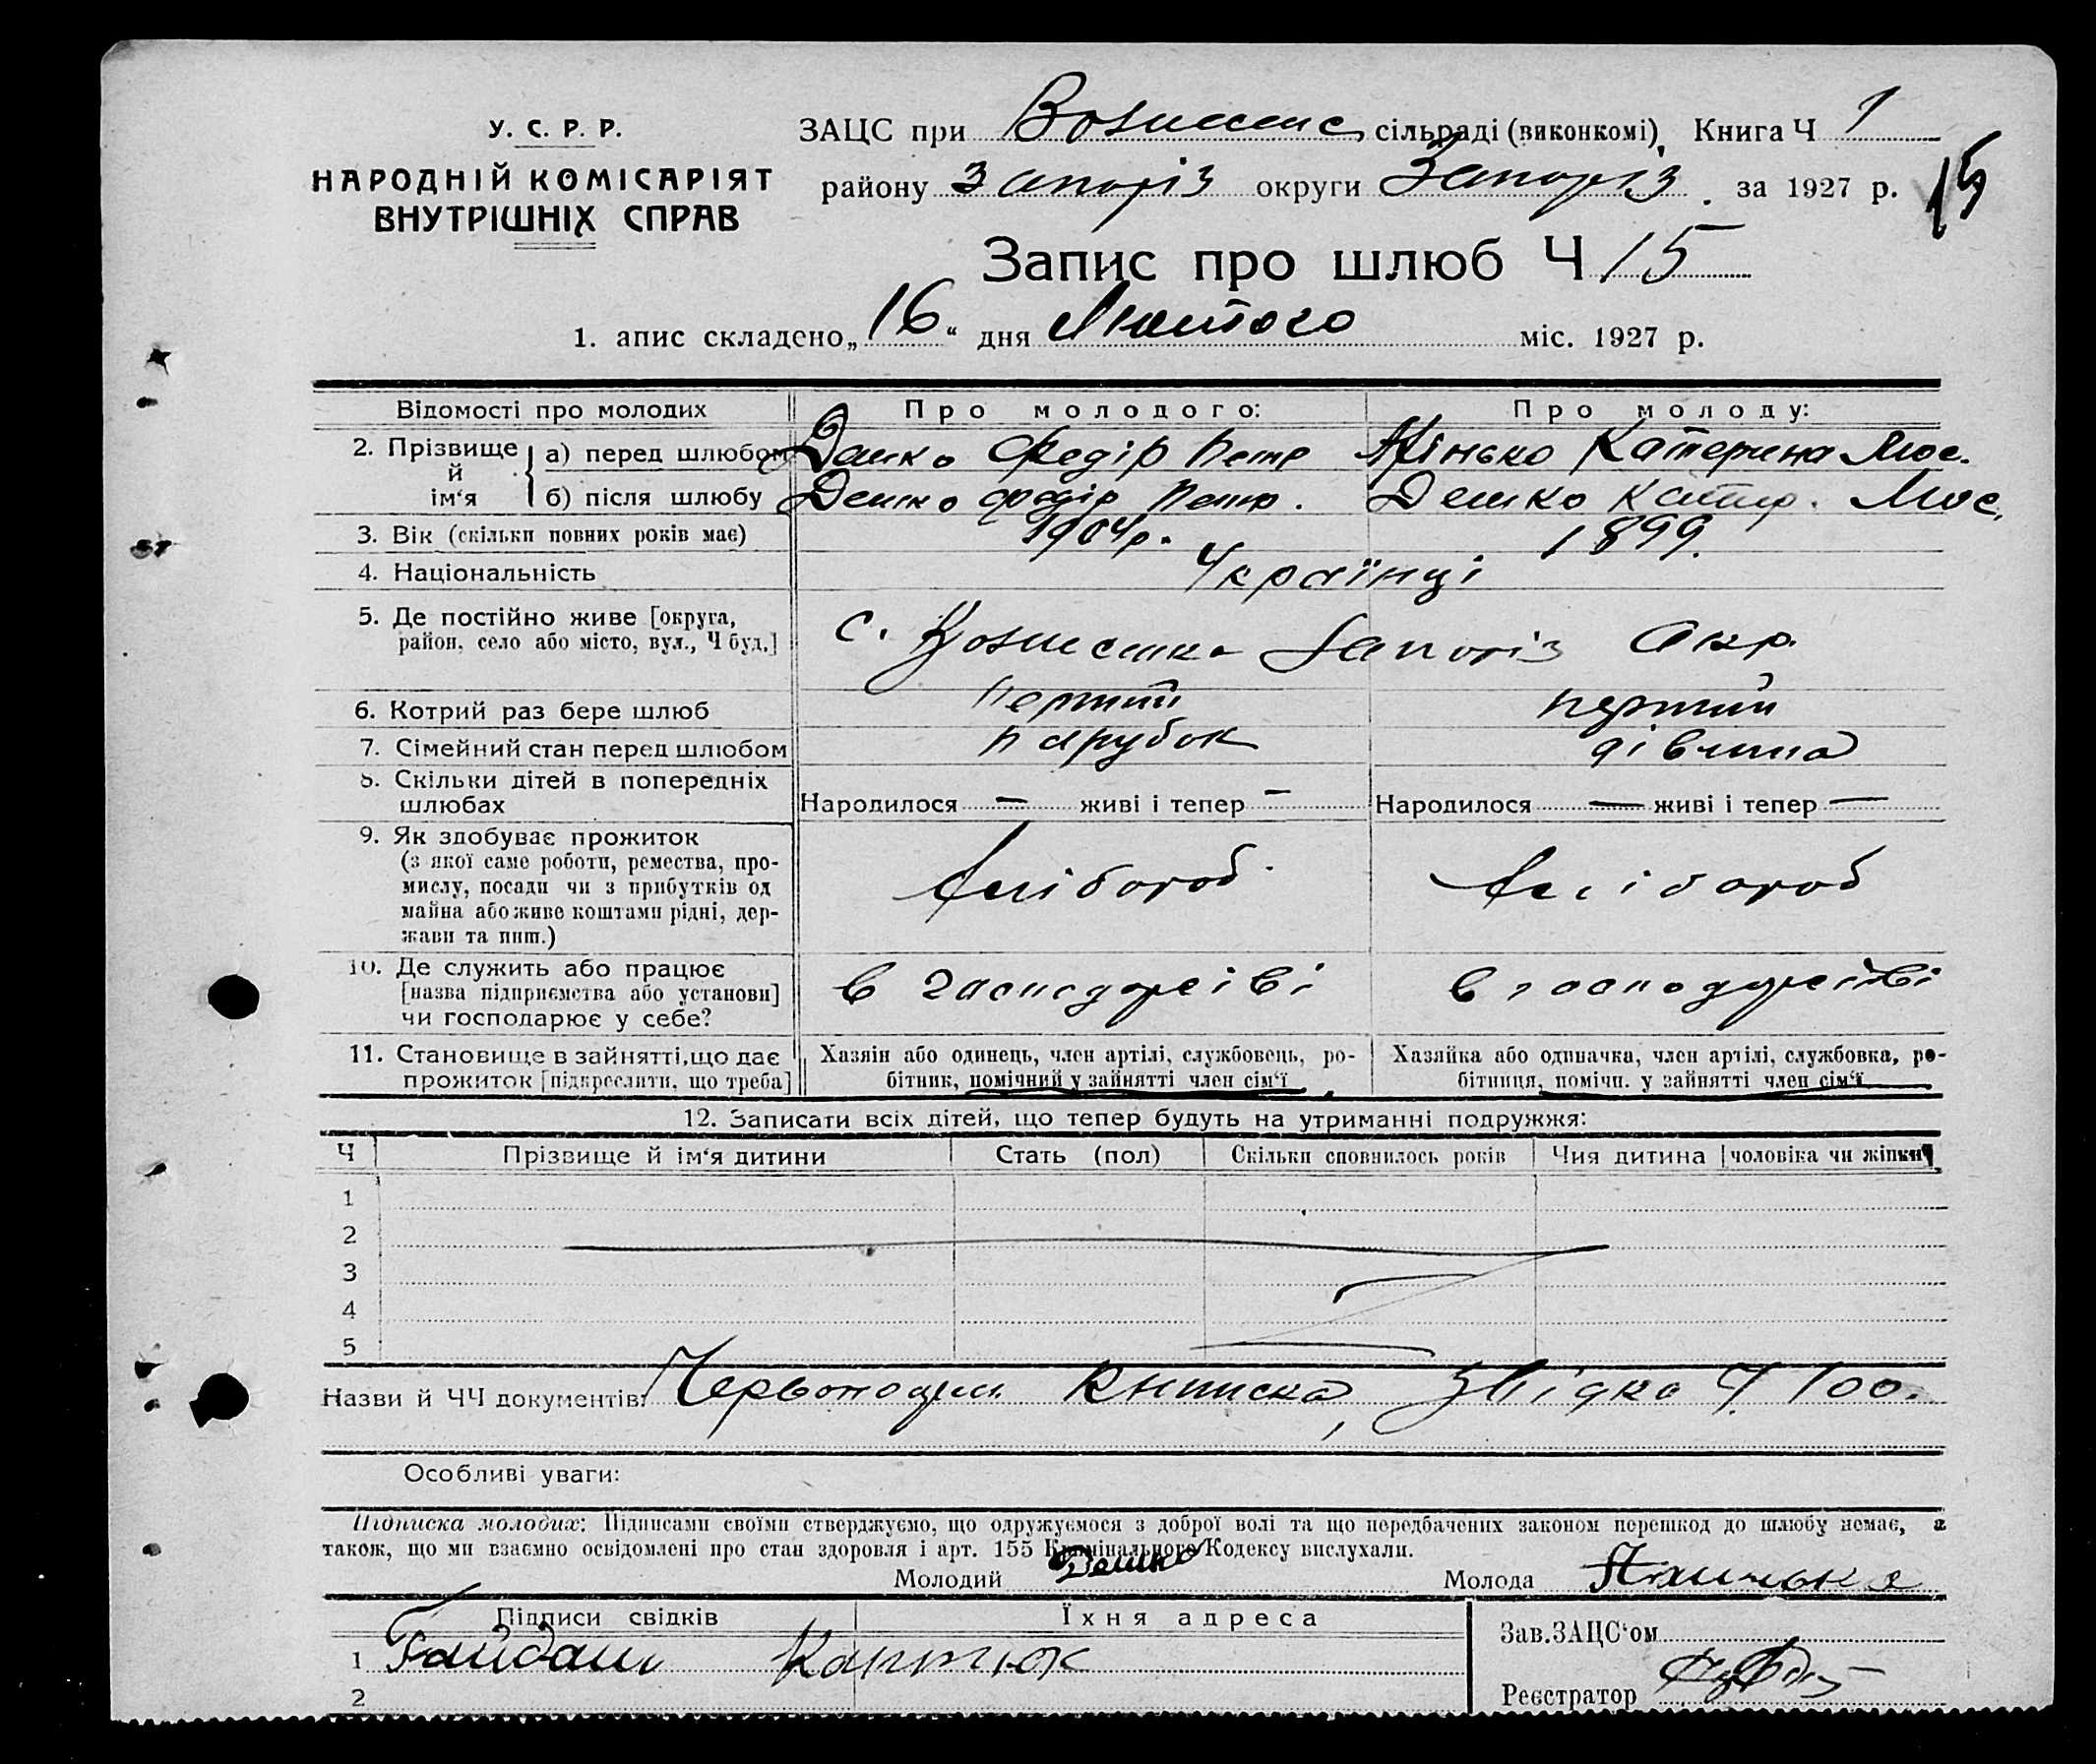 У. С. Р. Р.
НАРОДНІЙ КОМІСАРІЯТ
ВНУТРІШНІХ СПРАВ
ЗАЦС при Вознесенс сільраді (виконкомі), Книга Ч 1
району Запоріз округи Запоріз. за 1927 р.
15
Запис про шлюб Ч 15
1. апис складено „16“ дня Лютого міс. 1927 р.
Відомості про молодих
Про молодого:
Про молоду:
2. Прізвище й ім‘я
а) перед шлюбом
Федір Петр
Мінько Катерина Мос.
б) після шлюбу
Дешко Федір Петр.
Дешко Катер. Мос.
3. Вік (скільки повних років має)
1904р.
1899.
4. Національність
Українці
5. Де постійно живе [округа,
район, село або місто, вул., Ч буд.]
с. Вознесенка Запоріз Окр.
6. Котрий раз бере шлюб
перший
перший
7. Сімейний стан перед шлюбом
парубок
дівчина
8. Скільки дітей в попередніх
шлюбах
Народилося — живі і тепер —
Народилося — живі і тепер —
9. Як здобуває прожиток
(з якої саме роботи, ремества, про-
мислу, посади чи з прибутків од
майна або живе коштами рідні, дер-
жави та инш.)
хлібороб.
хлібороб
10. Де служить або працює
[назва підприємства або установи]
чи господарює у себе?
в господарстві
в господарстві
11. Становище в зайнятті, що дає
прожиток [підкреслити, що треба]
Хазяїн або одинець, член артілі, службовець, ро-
бітник, помічний у зайнятті член сім‘ї
Хазяйка або одиначка, член артілі, службовка, ро-
бітниця, помічн. у зайнятті член сім‘ї
12. Записати всіх дітей, що тепер будуть на утриманні подружжя:
Ч
Прізвище й ім‘я дитини
Стать (пол)
Скільки сповнилось років
Чия дитина [чоловіка чи жінки]
1
2
3
4
5
Назви й ЧЧ документів: Книжка, Звідка Ч. 100.
Особливі уваги:
Підписка молодих: Підписами своїми стверджуємо, що одружуємося з доброї волі та що передбачених законом перешкод до шлюбу немає, а
також, що ми взаємно освідомлені про стан здоровля і арт. 155 Кримінального Кодексу вислухали.
Молодий Дешко
Молода
Підписи свідків
Їхня адреса
Зав.ЗАЦС‘ом
1
2
Реєстратор